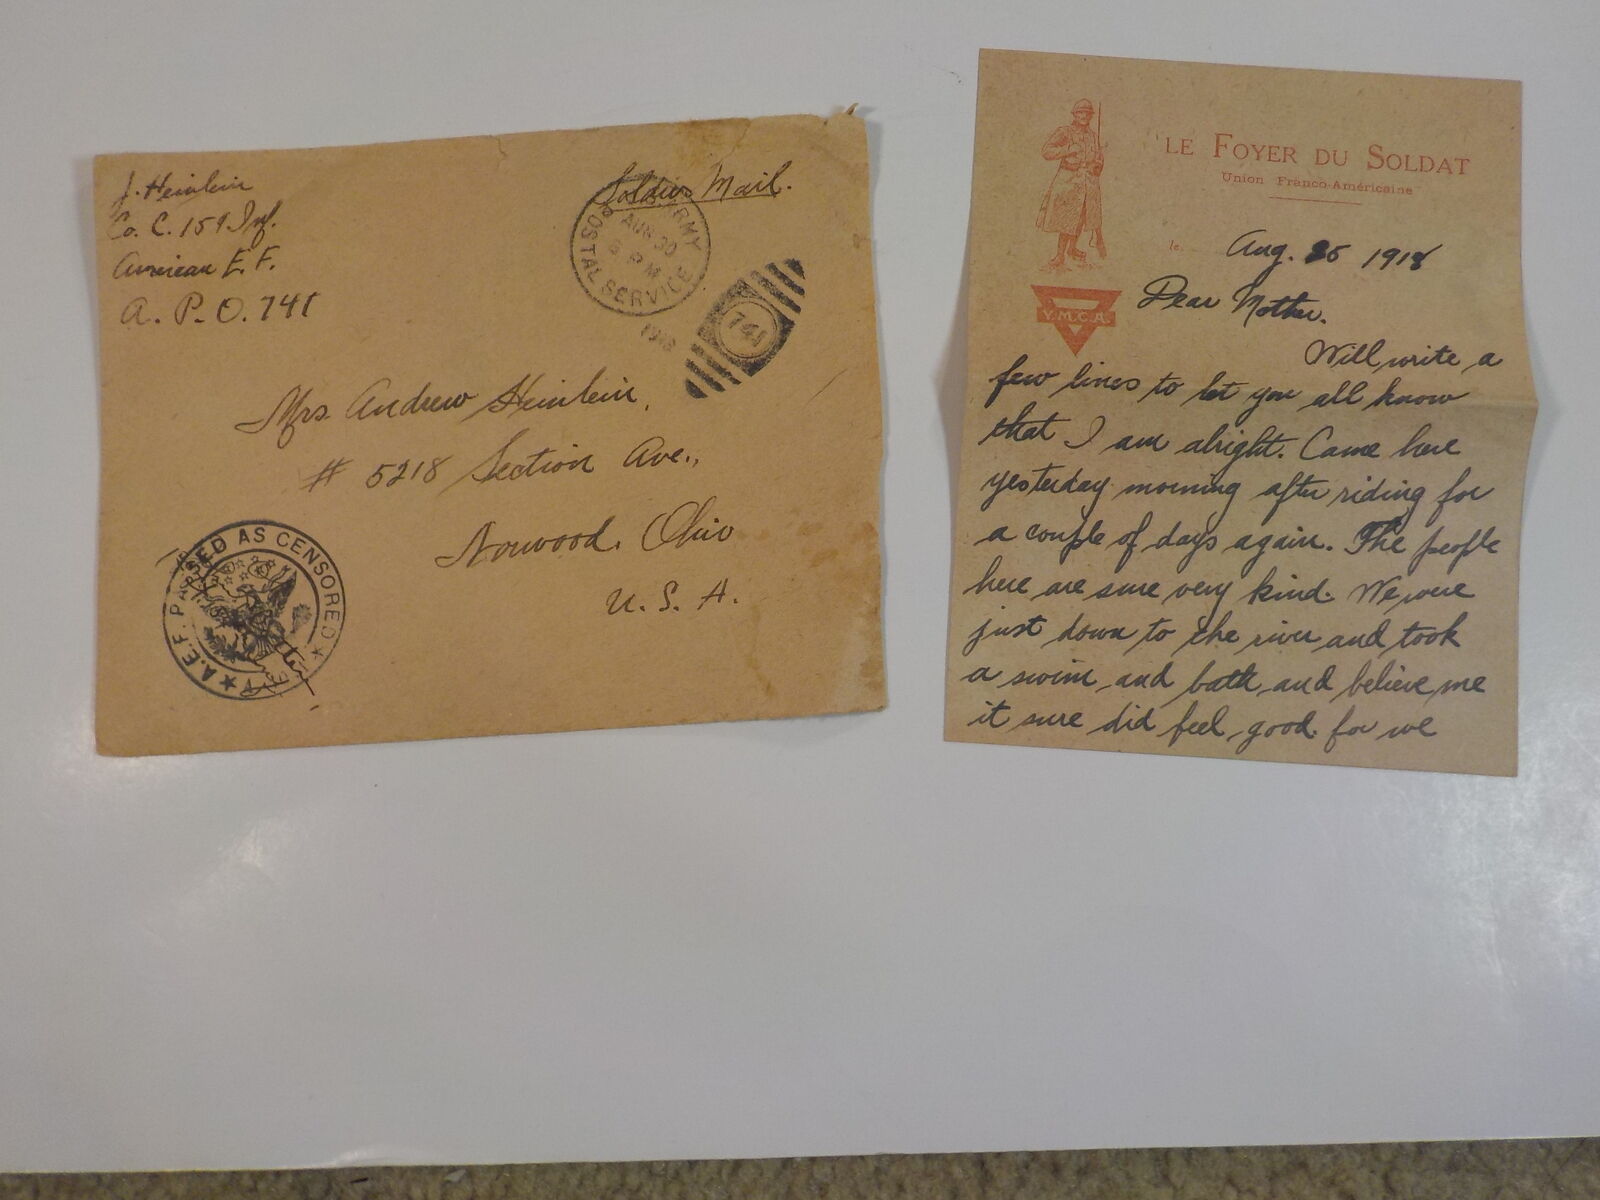 J. Heinlein
Co. C. 159 Inf.
American E. F.
A. P. O. 741
Soldiers Mail.
ARMY
POSTAL SERVICE
AUG 30
P M
1918
741
Mrs Andrew Heinlein,
# 5218 Section Ave.,
Norwood, Ohio
U. S. A.
A.E.F. PASSED AS CENSORED
LE FOYER DU SOLDAT
Union Franco-Américaine
le Aug. 25 1918
Y.M.C.A.
Dear Mother.
Will write a
few lines to let you all know
that I am alright. Came here
yesterday morning after riding for
a couple of days again. The people
here are sure very kind. We were
just down to the river and took
a swim and bath and believe me
it sure did feel good for we